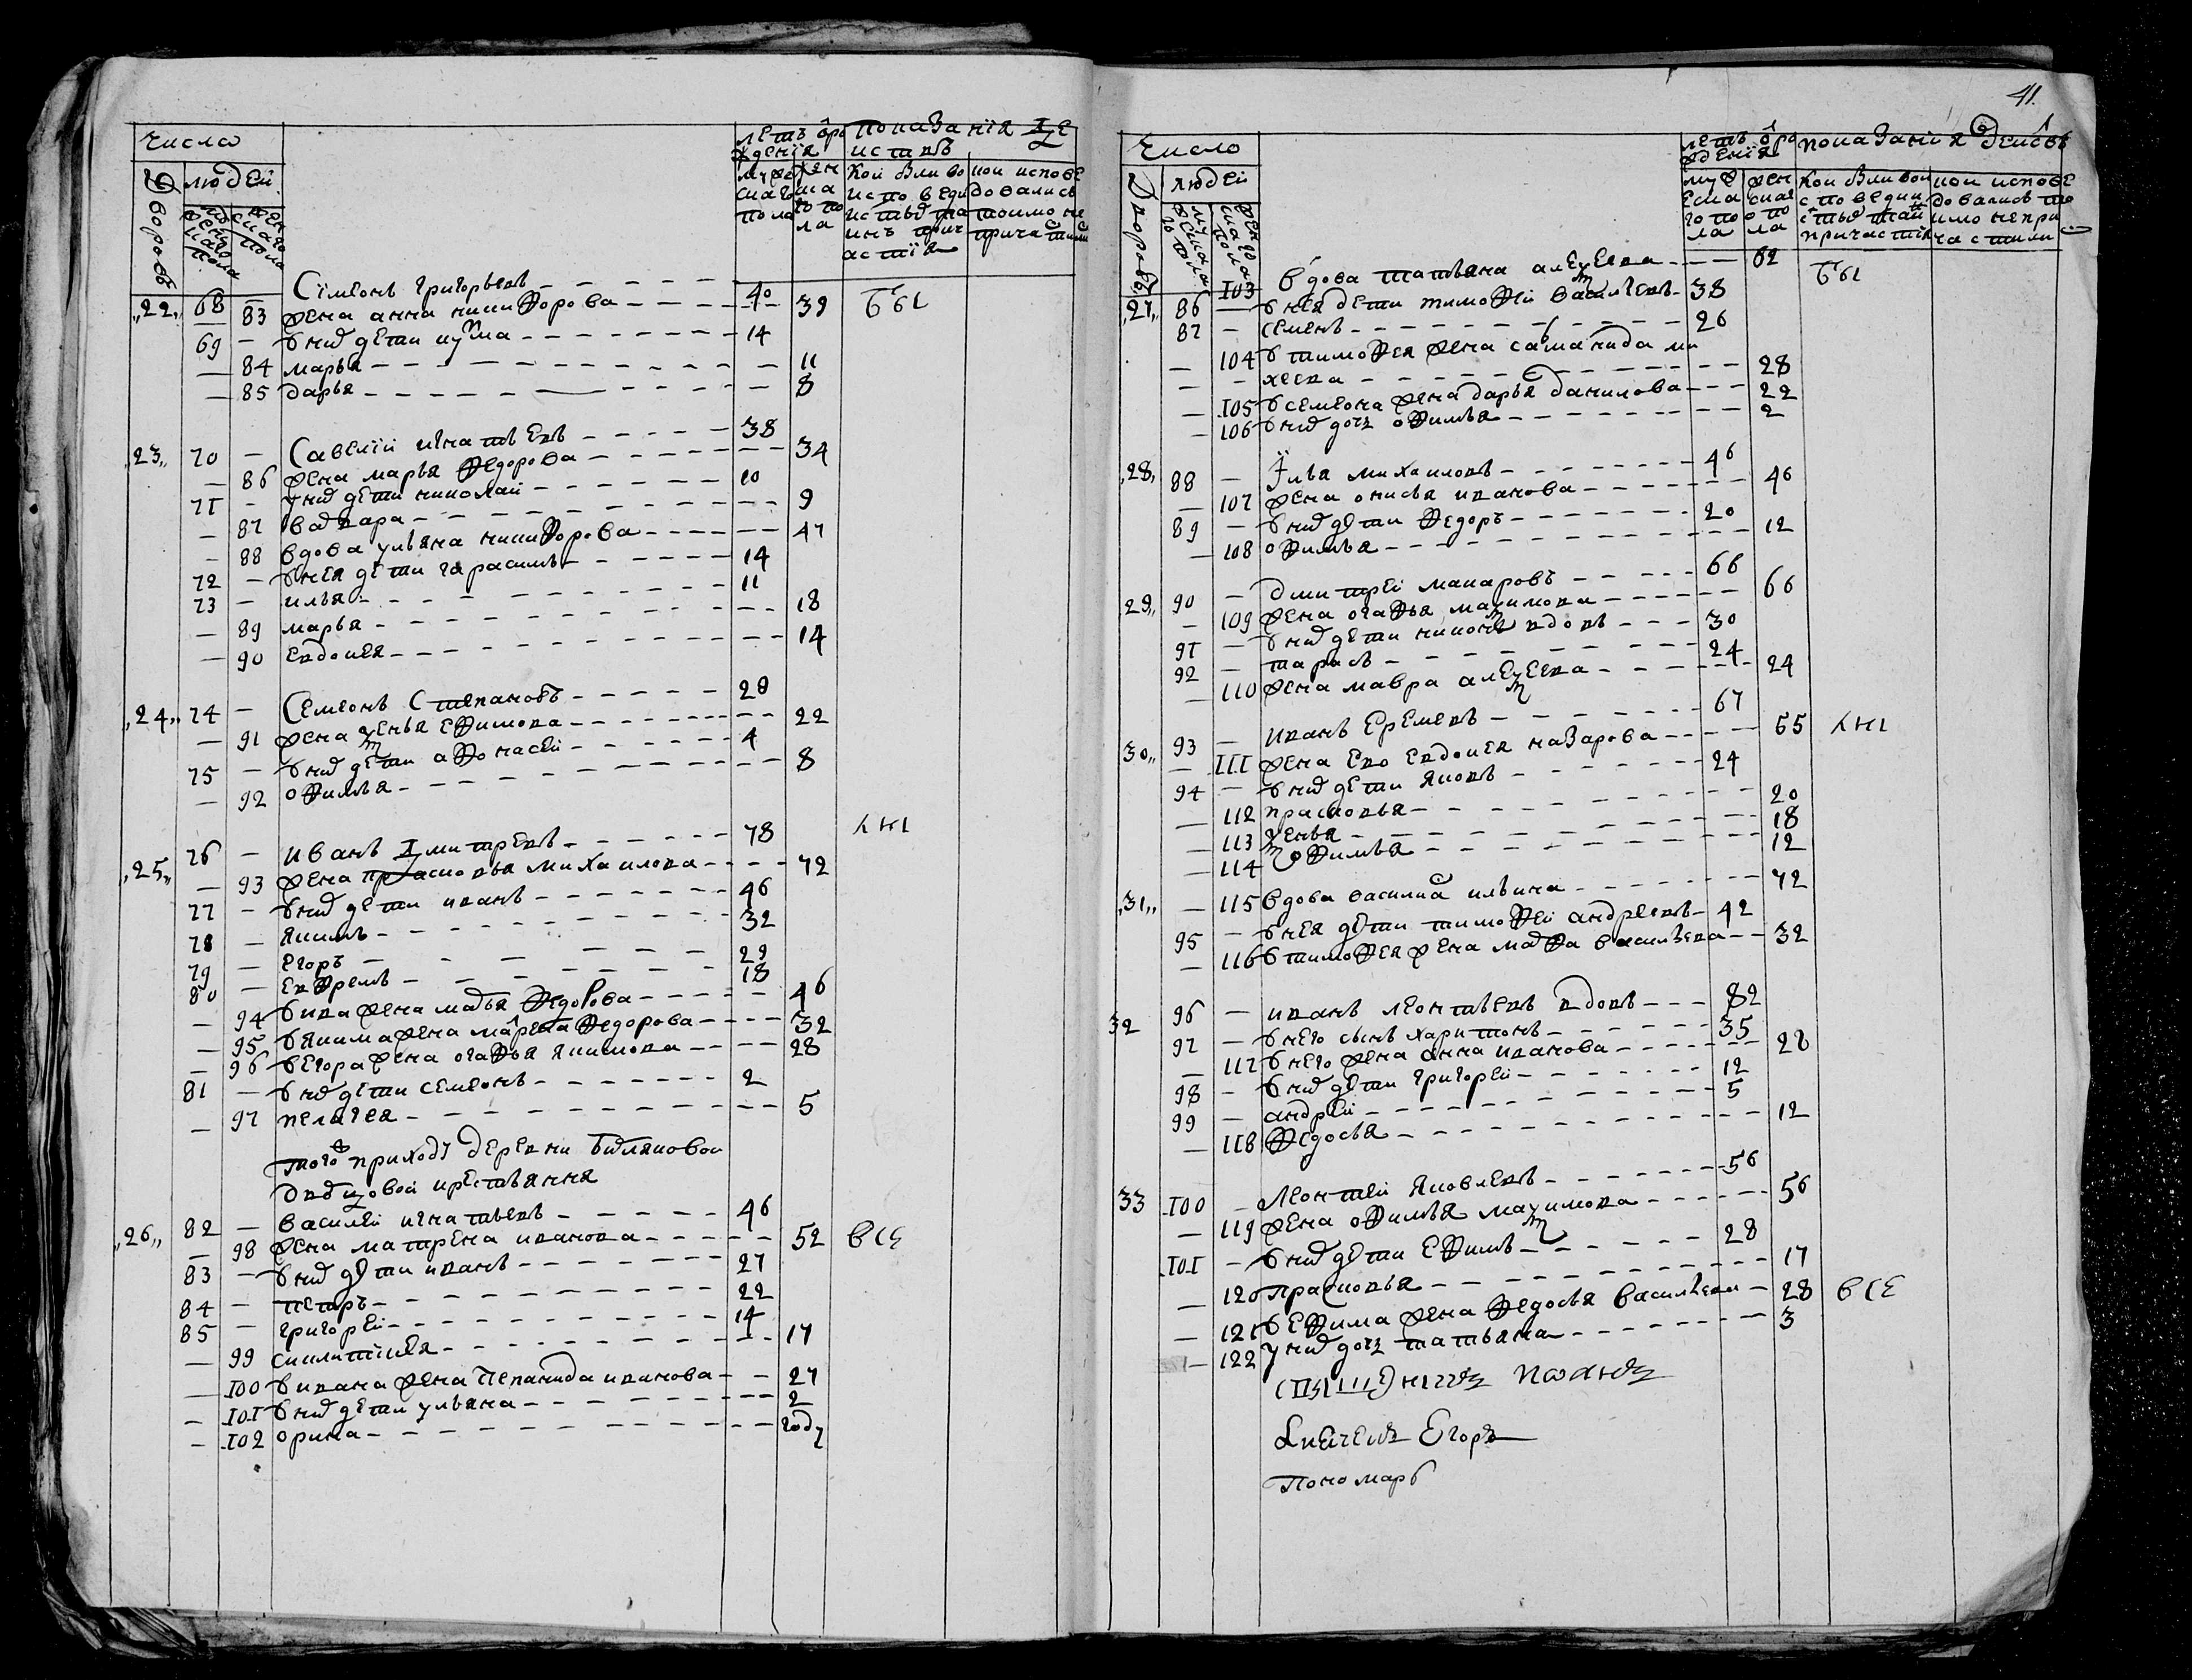 Число
Дворовъ
людей
мужеска пола
женска пола
летъ ѡро
жденїя
мужеска пола
женска пола
показанїя дейс
кои были во исповеди
кои исповедовались токмо не причастили
22 68 Сїмеонъ григорьевъ 40
83 жена анна никифорова 39 бы
69 у нихъ дети кузма 14
84 марья 11
85 дарья 8
23 70 Савелїй игнатьевъ 38
86 жена марья федорова 34
71 у нихъ дети николай 10
87 варвара 9
88 вдова ульяна никифорова 47
72 у нея дети гарасимъ 14
73 илья 11
89 марья 18
90 евдокея 14
24 74 Семенъ степановъ 28
91 жена ксенья ефимова 22
75 у нихъ дети афонасей 4
92 офимья 8
25 76 иванъ дмитревъ 78
93 жена прасковья михаилова 72
77 у нихъ дети иванъ 46
78 якимъ 32
79 егоръ 29
80 ефремъ 18
94 у ивана жена марья федорова 46
95 у якима жена марева федорова 32
96 у егора жена огафья якимова 28
81 у нихъ дети семенъ 2
97 пелагея 5
того приходу деревни
крестьяння
26 82 василей игнатьевъ 46
98 жена матрена иванова 52 все
83 у нихъ дети иванъ 27
84 петръ 22
85 григорей 14
99 17
100 у ивана жена степанида иванова 27
101 у нихъ дети ульяна 2
102 орина году
41.
Число
Дворовъ
людей
мужеска пола
женска пола
летъ ѡро
жденїя
мужеска пола
женска пола
показанїя действ
кои были во исповеди
кои исповедовались токмо не причастили
103 вдова татьяна алексеева 62 бы
27 86 у нея дети тимофей васильевъ 38
87 семенъ 26
104 у тимофея жена саманида ми
хеева 28
105 у семена жена дарья данилова 22
106 у нихъ дочь офимья 2
28 88 Їлья михаиловъ 46
107 жена онисья иванова 46
89 у нихъ дети федоръ 20
108 офимья 12
29 90 дмитрей макаровъ 66
109 жена огафья максимова 66
91 у нихъ дети никонъ вдовъ 30
92 тарасъ 24
110 жена мавра алексеева 24
30 93 иванъ еремеевъ 67
111 жена ево евдокея назарова 55
94 у нихъ дети яковъ 24
112 прасковья 20
113 ксенья 18
114 офимья 12
31 115 вдова василиса ильина 72
95 у нея дети тимофей андреевъ 42
116 у тимофея жена марфа васильева 32
32 96 иванъ леонтьевъ вдовъ 82
97 у него сынъ харитонъ 35
117 у него жена анна иванова 28
98 у нихъ дети григорей 12
99 андрей 5
118 федосья 12
33 100 Леонтей яковлевъ 56
119 жена офимья максимова 56
101 у нихъ дети ефимъ 28
120 прасковья 17
121 у ефима жена федосья васильева 28 все
122 у нихъ дочь татьяна 3
Священникъ Иоаннъ
Егоръ
Пономарь